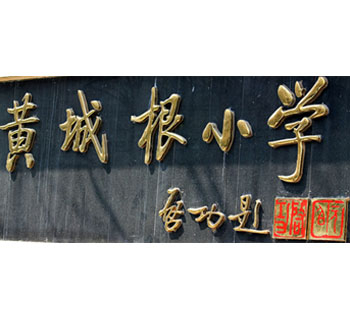 黄城根小学
启功题